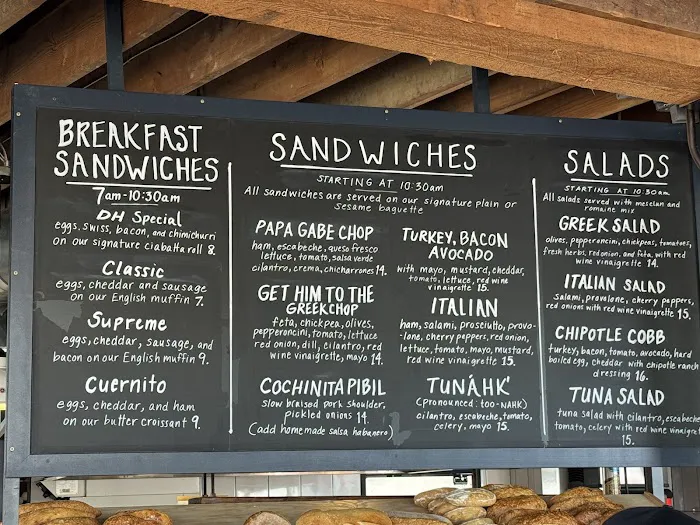 BREAKFAST
SANDWICHES
7am-10:30am
DH Special
eggs, swiss, bacon, and chimichurri
on our signature ciabatta roll 8.
Classic
eggs, cheddar and sausage
on our English muffin 7.
Supreme
eggs, cheddar, sausage, and
bacon on our English muffin 9.
Cuernito
eggs, cheddar, and ham
on our butter croissant 9.
SANDWICHES
STARTING AT 10:30am
All sandwiches are served on our signature plain or
sesame baguette
PAPA GABE CHOP
ham, escabeche, queso fresco
lettuce, tomato, salsa verde
cilantro, crema, chicharrones 14.
GET HIM TO THE
GREEKCHOP
feta, chickpea, olives,
pepperoncini, tomato, lettuce
red onion, dill, cilantro, red
wine vinaigrette, mayo 14.
COCHINITA PIBIL
slow braised pork shoulder,
pickled onions 14.
(add homemade salsa habanero)
TURKEY, BACON
AVOCADO
with mayo, mustard, cheddar,
tomato, lettuce, red wine
vinaigrette 15.
ITALIAN
ham, salami, prosciutto, provo-
-lone, cherry peppers, red onion,
lettuce, tomato, mayo, mustard,
red wine vinaigrette 15.
TUNÁHK'
(pronounced: too-NAHK)
cilantro, escabeche, tomato,
celery, mayo 15.
SALADS
STARTING AT 10:30am
All salads served with mesclan and
romaine mix
GREEK SALAD
olives, pepperoncini, chickpeas, tomatoes,
fresh herbs, red onion, and feta, with red
wine vinaigrette 14.
ITALIAN SALAD
Salami, provolone, cherry peppers,
red onions with red wine vinaigrette 15.
CHIPOTLE COBB
turkey, bacon, tomato, avocado, hard
boiled egg, cheddar with chipotle ranch
dressing 16.
TUNA SALAD
tuna salad with cilantro, escabeche
tomato, celery with red wine vinaigrette
15.